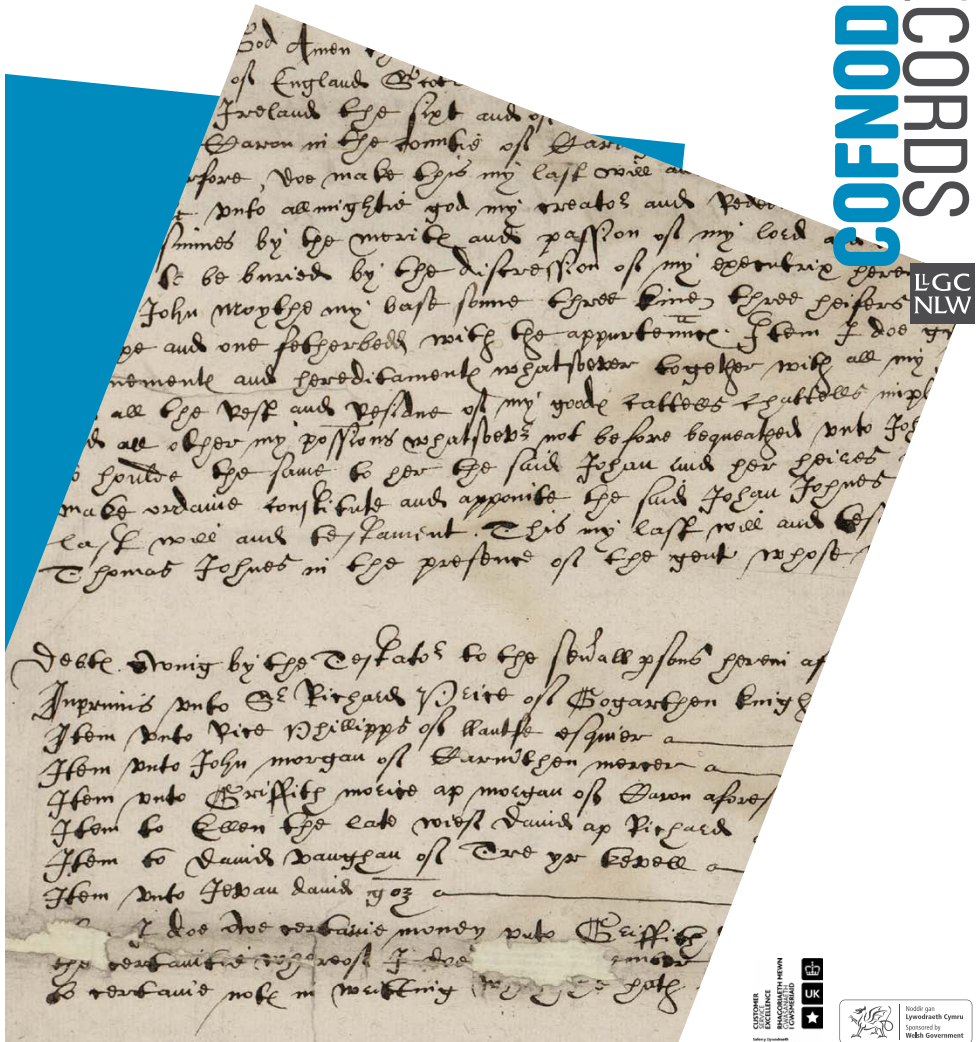 God Amen
of England Scotl
Ireland the sixt and of
Caron in the Countie of Car
rfore, doe make this my last will an
unto allmightie god my creator and Rede
sinnes by the merite and passion of my lord a
to be buried by the discression of my executrix here
John moythe my base sonne three kine three heifers
pe and one fetherbedd with the appurtennce. Item I doe g
nemente and hereditamente whatsoever together with all my
all the rest and residue of my goode cattells chattells impl
all other my possions whatsoever not before bequeathed unto Joh
houlde the same to her the said Johan and her heires
make ordaine constitute and appointe the said Johan Johnes
last will and testament. This my last will and tes
Thomas Johnes in the presence of the gent whose
Debte owinge by the Testator to the sevall psons herein af
Inprimis unto Sr Richard Price of Gogarthen knigh
Item unto Rice Phillipps of llantfe esquier a
Item unto John morgan of Carmthen mercer a
Item unto Griffith morice ap morgan of Caron afores
Item to Ellen the late wief david ap Richard
Item to david vaughan of Tre yr kevell a
Item unto Jevan david goz a
I doe owe certaine money unto Griffith
the certaintie whereof I doe
to certaine note in writting hath
COFNOD
CORDS
LLGC
NLW
CUSTOMER
SERVICE
EXCELLENCE
RHAGORIAETH MEWN
GWASANAETH
I GWSMERIAID
UK
Noddir gan
Lywodraeth Cymru
Sponsored by
Welsh Government